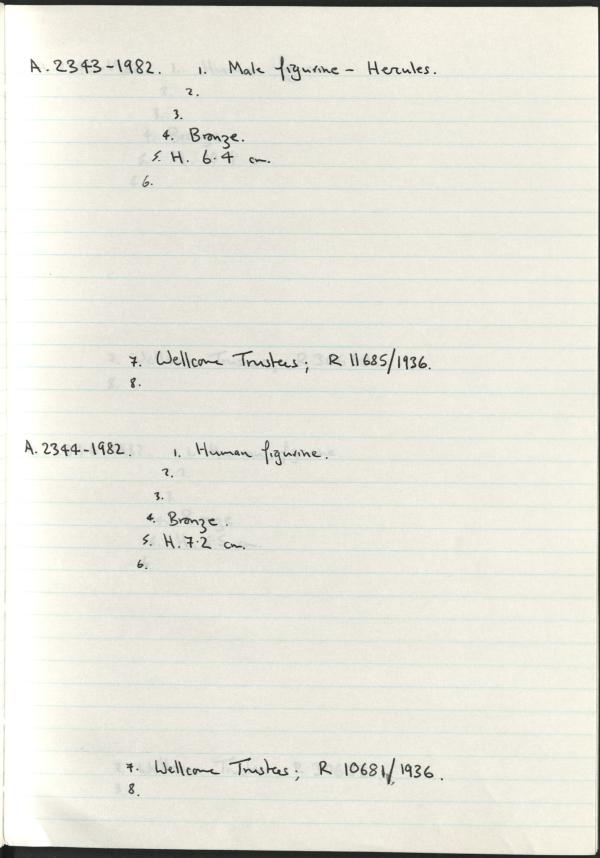 A.2343-1982. 1. Male figurine - Hercules.
2.
3.
4. Bronze.
5. H. 6.4 cm.
6.
7. Wellcome Trustees; R 11685/1936.
8.
A.2344-1982. 1. Human figurine.
2.
3.
4. Bronze.
5. H. 7.2 cm.
6.
7. Wellcome Trustees; R 10681/1936.
8.